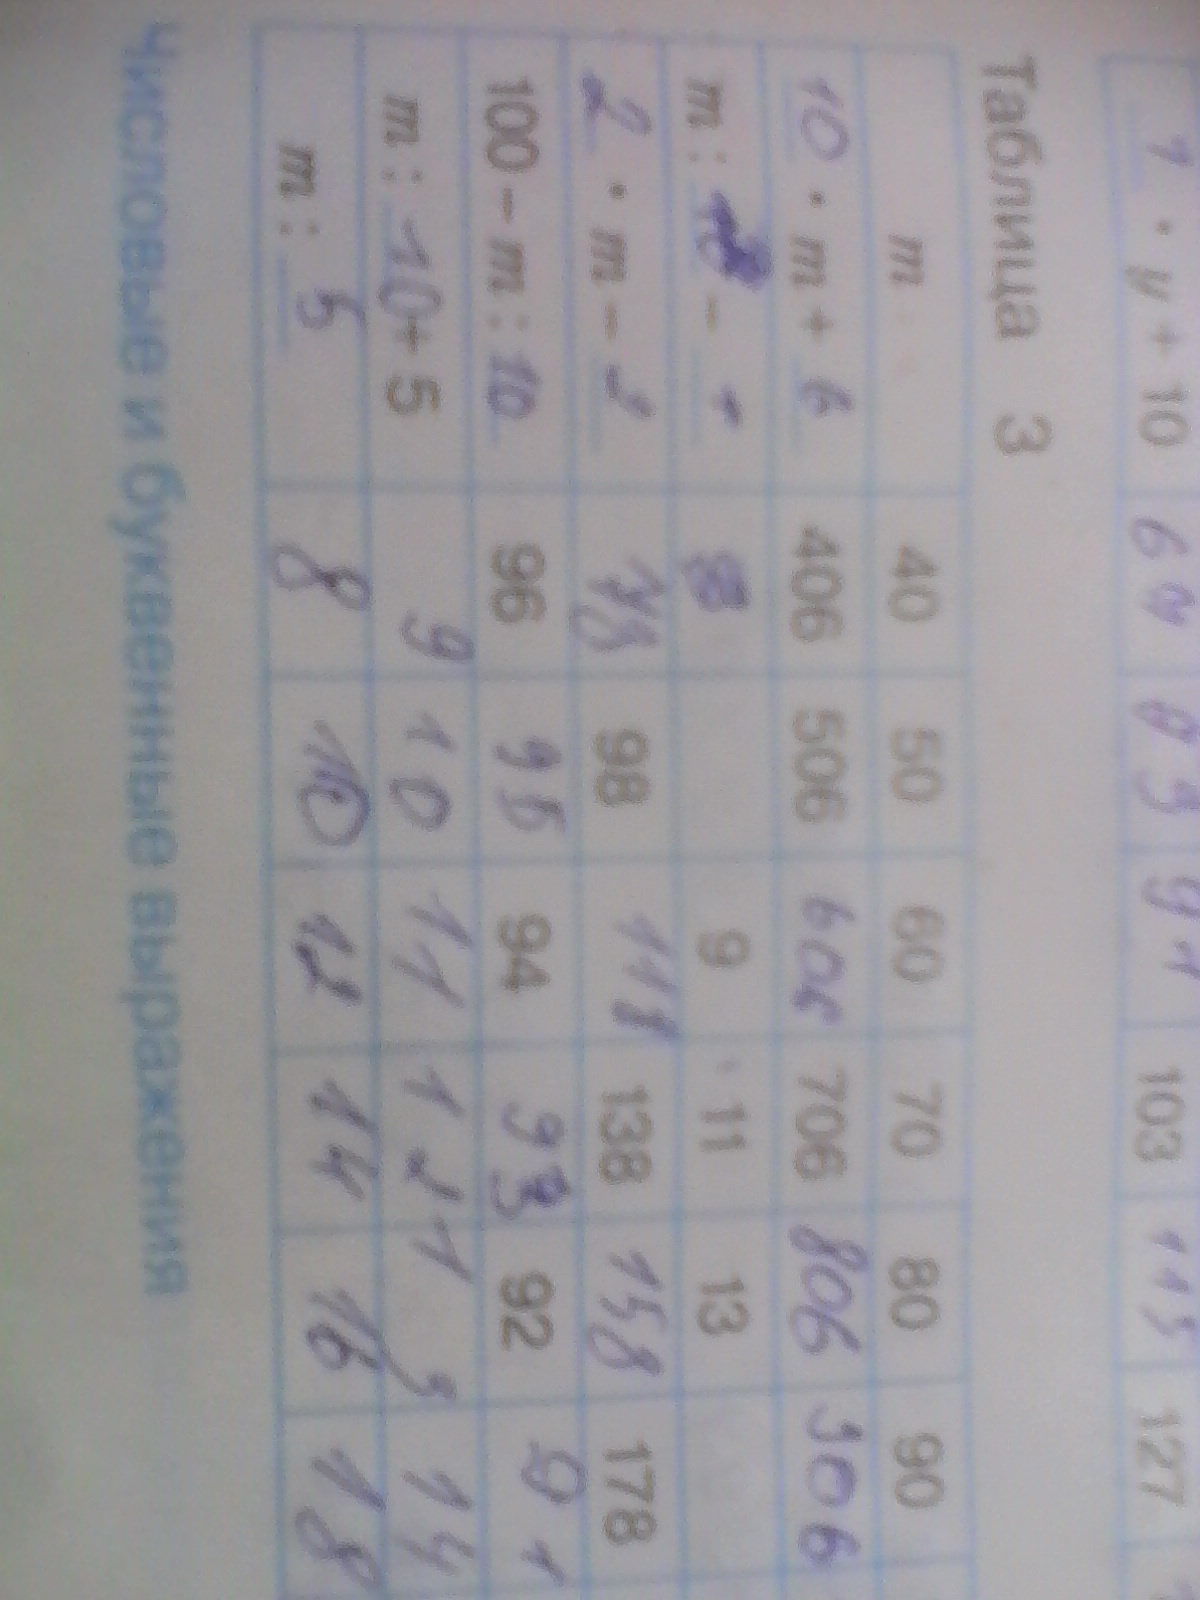 · y + 10 103 115 127
Таблица 3
m 40 50 60 70 80 90
10 · m + 6 406 506 606 706 806 906
m : - 9 11 13
2 · m - 2 78 98 118 138 158 178
100 - m : 10 96 95 94 93 92 91
m : 10 + 5 9 10 11 12 13 14
m : 5 8 10 12 14 16 18
Числовые и буквенные выражения